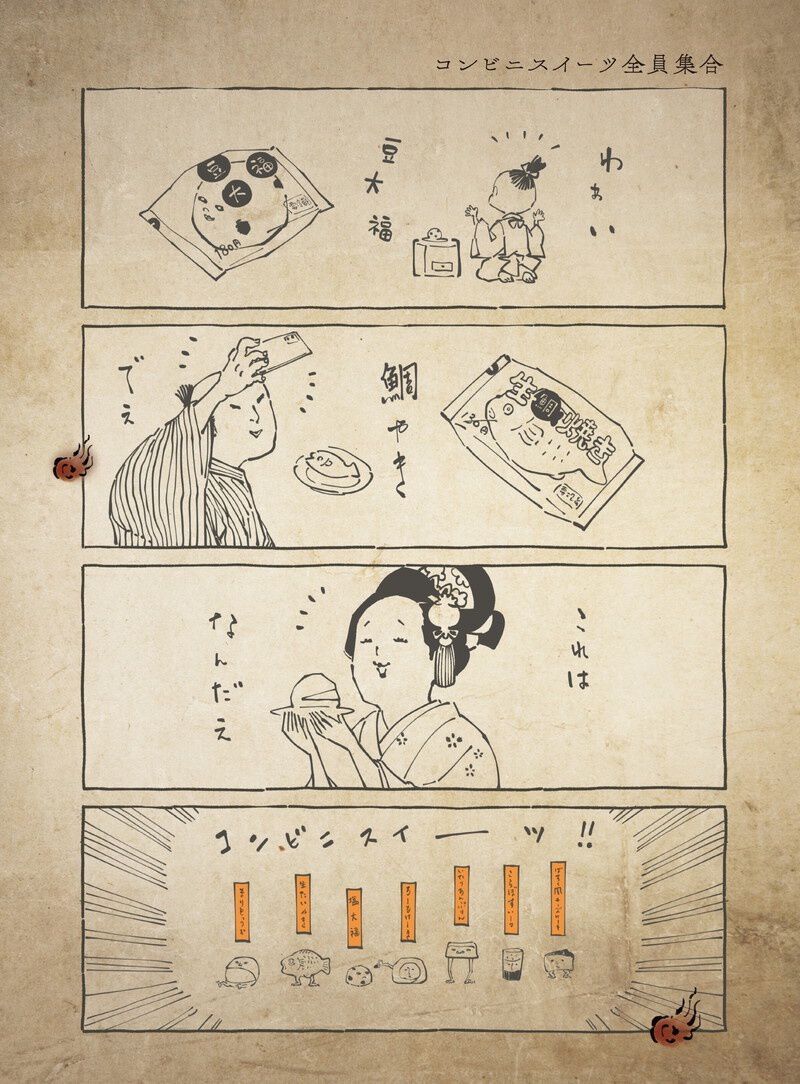 コンビニスイーツ全員集合
わぁい
豆大福
豆大福
180円
でぇ
鯛やき
生鯛焼き
130円
これは
なんだえ
コンビニスイーツ!!
生たいやき
塩大福
ろーるけーき